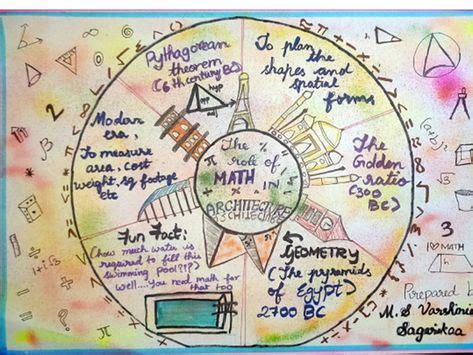 Pythagorean
theorem
(6th century BC)
hyp
opp
adj
To plan
the
shapes and
spatial
forms
Modern
era,
To measure
area, cost
weight, sq footage
etc
The
role of
MATH
IN
ARCHITECTURE
The
Golden
ratio
(300
BC)
Fun Fact:
(how much water is
required to fill this
swimming pool?!?)
Well....You need math for
that too
GEOMETRY
(The pyramids
of Egypt)
2700 BC
2
3
I ♡ MATH
Prepared by
M. S Varshinie
Sagarikaa